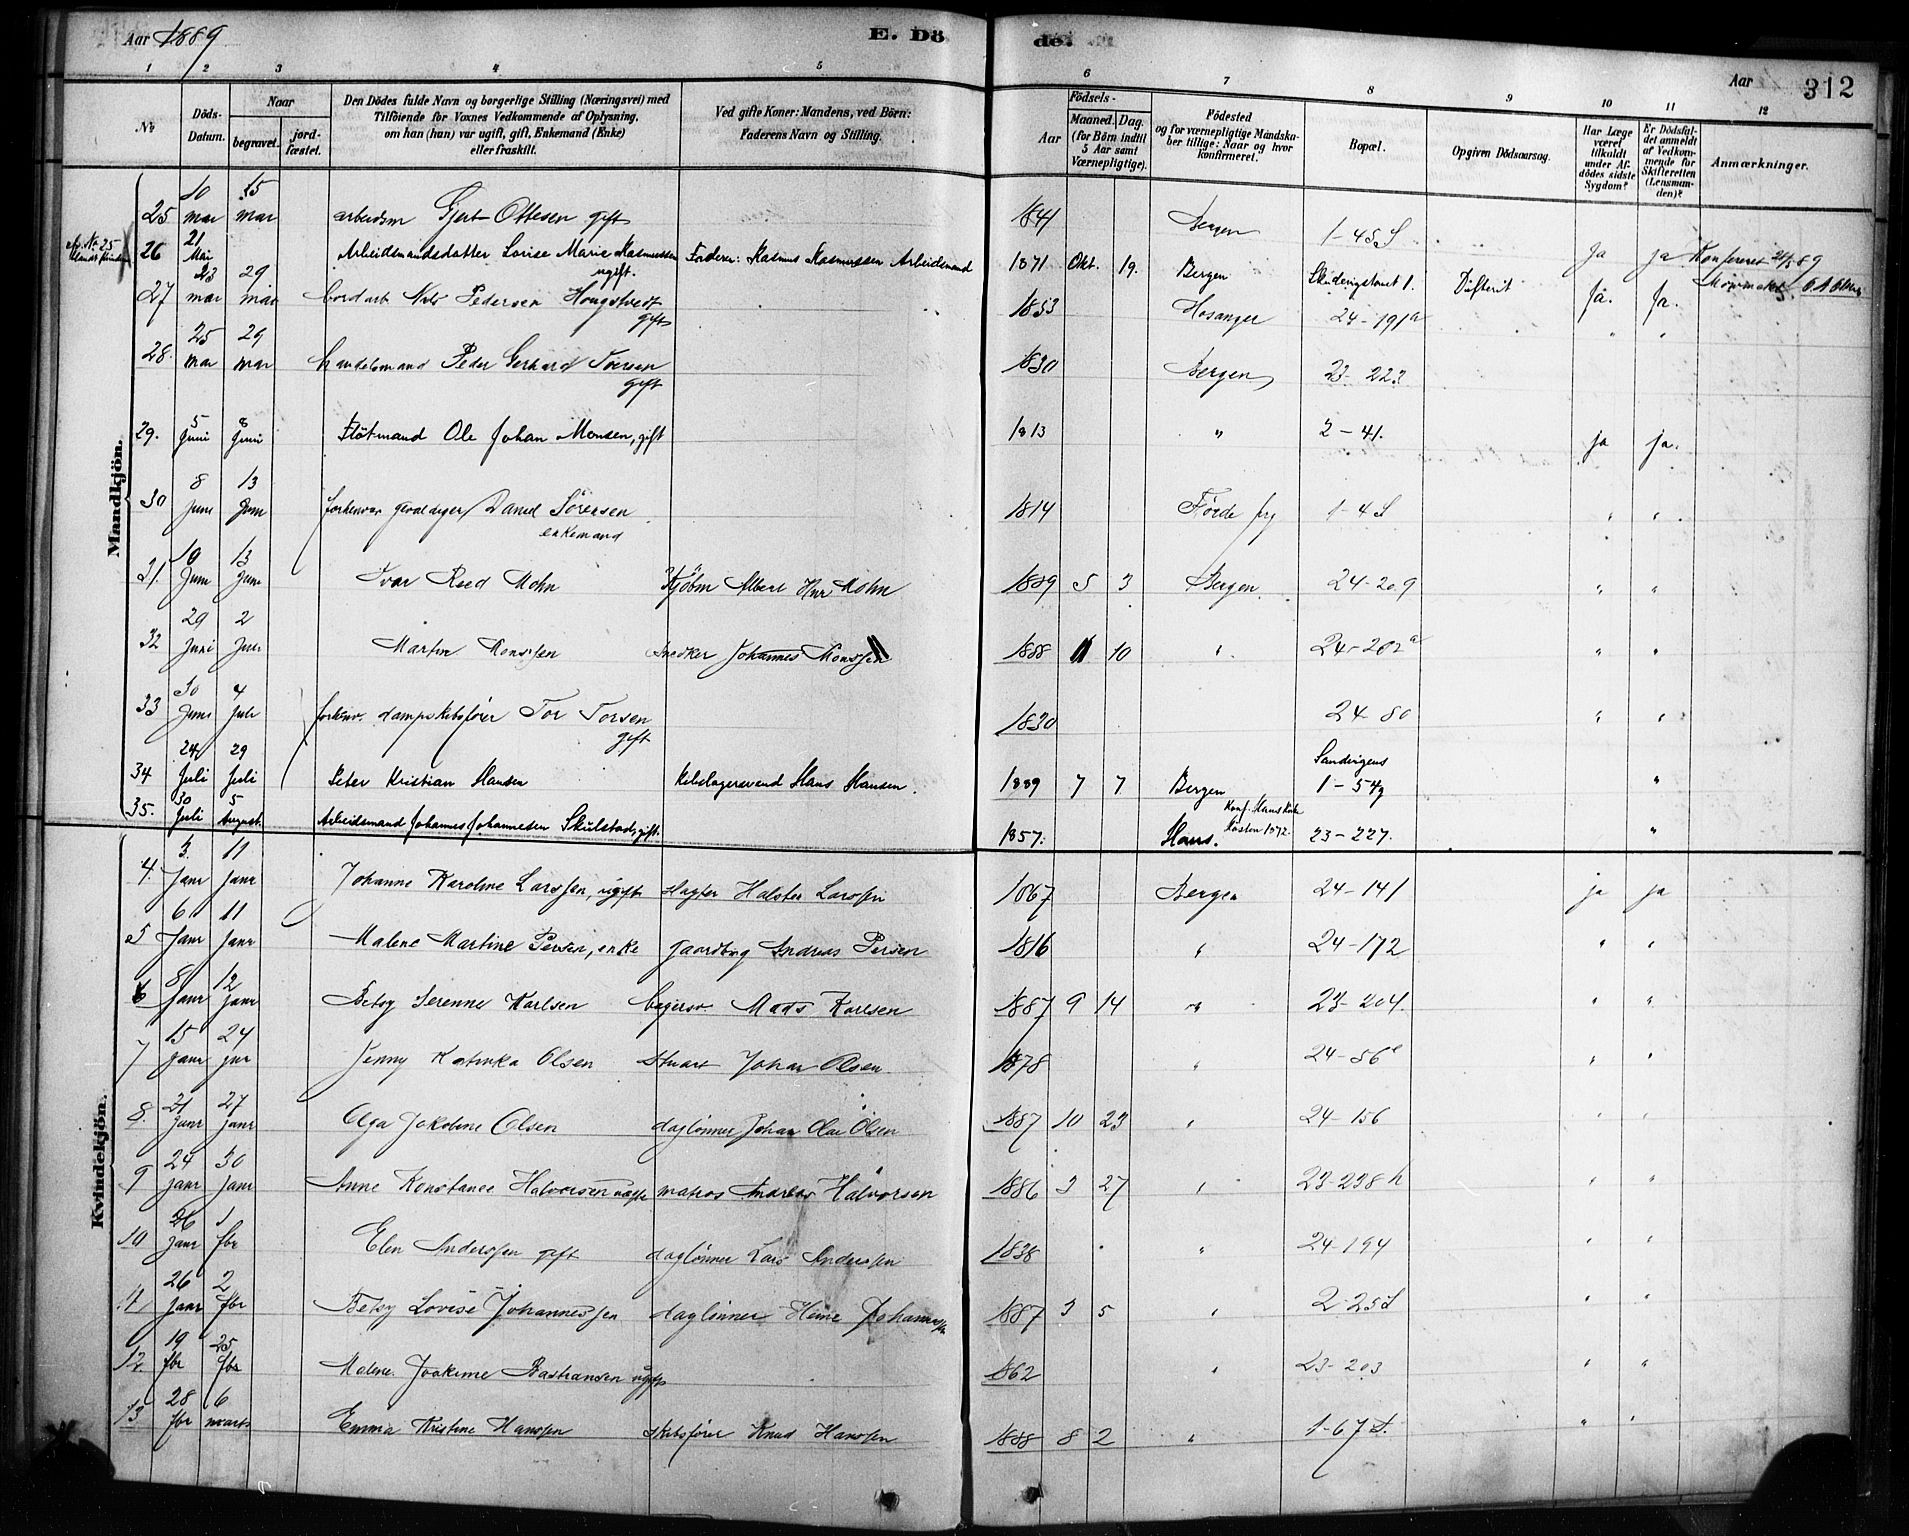 Aar 1889
E. Dö
de.
Aar
312
1 2 3 4 5 6 7 8 9 10 11 12
No
Döds-Datum.
Naar
begravet.
jord-fæstet.
Den Dödes fulde Navn og borgerlige Stilling (Næringsvei) med
Tilföiende for Voxnes Vedkommende af Oplysning,
om han (hun) var ugift, gift, Enkemand (Enke)
eller fraskilt.
Ved gifte Koner: Mandens, ved Börn:
Faderens Navn og Stilling.
Födsels-
Aar
Maaned. Dag.
(for Börn indtil
5 Aar samt
Værnepligtige).
Födested
og for værnepligtige Mandska-
ber tillige: Naar og hvor
konfirmeret.
Bopæl.
Opgiven Dödsaarsag.
Har Læge
været
tilkaldt
under Af-
dödes sidste
Sygdom?
Er Dödsfal-
det anmeldt
af Vedkom-
mende for
Skifteretten
(Lensman-
den)?
Anmærkninger.
Mandkjön.
25 10 mar 15 mar arbeidsm Gjert Ottesen gift 1841 Bergen 1-45 S
26 21 Mai Arbeidsmandsdatter Lovise Marie Rasmussen ugift. Forældre: Rasmus Rasmussen Arbeidsmand 1871 Okt. 19. Bergen 1. Difterit Ja ja Konfereret 89
27 23 mar 29 mar bordarb Nils Pedersen Hougstvedt gift 1853 Hosanger 24-191a Ja. Ja.
28. 25 mar 29 mar handelsmand Peder Gerhard Iversen gift 1830 Bergen 23-223 " "
29. 5 Juni 8 Juni Flötmand Ole Johan Monsen, gift 1813 " 2-41. ja ja.
30 8 Juni 13 Juni forhenvr Daniel Sörensen enkemand 1814 Förde 1-4 S " "
31. 10 Juni 13 Juni Ivar Reed Mohn Kjöbm Albert Hnr Mohn 1889 5 3 Bergen 24-209 " "
32 29 Juni 2 Juli Martin Monssen Snedker Johannes Monssen 1888 11 10 " 24-202a " "
33 30 Juni 4 Juli forhenv. dampskibsförer Tor Torsen gift 1830 24-80 " "
34 24 Juli 29 Juli Peter Kristian Hansen Hans Hansen. 1889 7 7 Bergen Sandvigens 1-54 "
35. 30 Juli 5 August. Arbeidsmand Johannes Johannesen Skulstad, gift. 1857. Haus. Konf. Haus Kirke Hösten 1872. 23-227. "
Kvindekjön.
4. 3. Janr 11 Janr Johanne Karoline Larssen, ugift slagter Halsten Larssen 1867 Bergen 24-141 ja ja
5 6 Janr 11 Janr Malene Martine Persen, enke gaardbrug Andreas Persen 1816 " 24-172 " "
6 8 Janr 12 Janr Betsy Serenne Karlsen bagersv. Mads Karlsen 1887 9 14 " 23-204. " "
7 15 Janr 24 jnr Jenny Katinka Olsen Stuart Johan Olsen 1878 " 24-56e " "
8. 21 Janr 27 janr Olga Jakobine Olsen daglönner Johan Olai Olsen 1887 10 23 " 24-156 " "
9 24 janr 30 Janr Anne Konstanee Halvorsen matros Andreas Halvorsen 1886 3 27 " 23-238h " "
10 26 Janr 1 fbr Elen Anderssen gift daglönner Lars Anderssen 1838 " 24-194 " "
11 26 Janr 2 fbr Betsy Lovise Johannessen daglönner Heine Johannessen 1887 3 5 " 2-25 S " "
12. 19 fbr 25 fbr Malene Joakime Bastiansen ugift 1862 " 23-203 " "
13 28 fbr 6 marts Emma Kristine Hanssen skibsförer Knud Hanssen 1888 8 2 " 1-67 S. " "